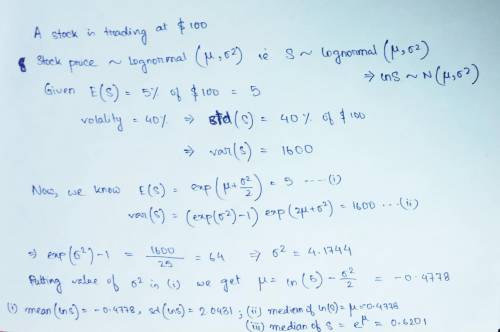 A stock is trading at $100
Stock price ~ lognormal (μ,σ²) ie S ~ lognormal (μ,σ²)
⇒ lnS ~ N(μ,σ²)
Given E(S) = 5% of $100 = 5
volality = 40% ⇒ std(S) = 40% of $100
⇒ var(S) = 1600
Now, we know E(S) = exp(μ+σ²/2) = 5 ....(i)
var(S) = (exp(σ²)-1) exp(2μ+σ²) = 1600 ...(ii)
⇒ exp(σ²)-1 = 1600/25 = 64 ⇒ σ² = 4.1744
Putting value of σ² in (i) we get μ = ln(5) - σ²/2 = -0.4778
(i) mean(lnS) = -0.4778, sd(lnS) = 2.0431; (ii) median of ln(S) = μ = -0.4778
(iii) median of S = e^μ = 0.6201